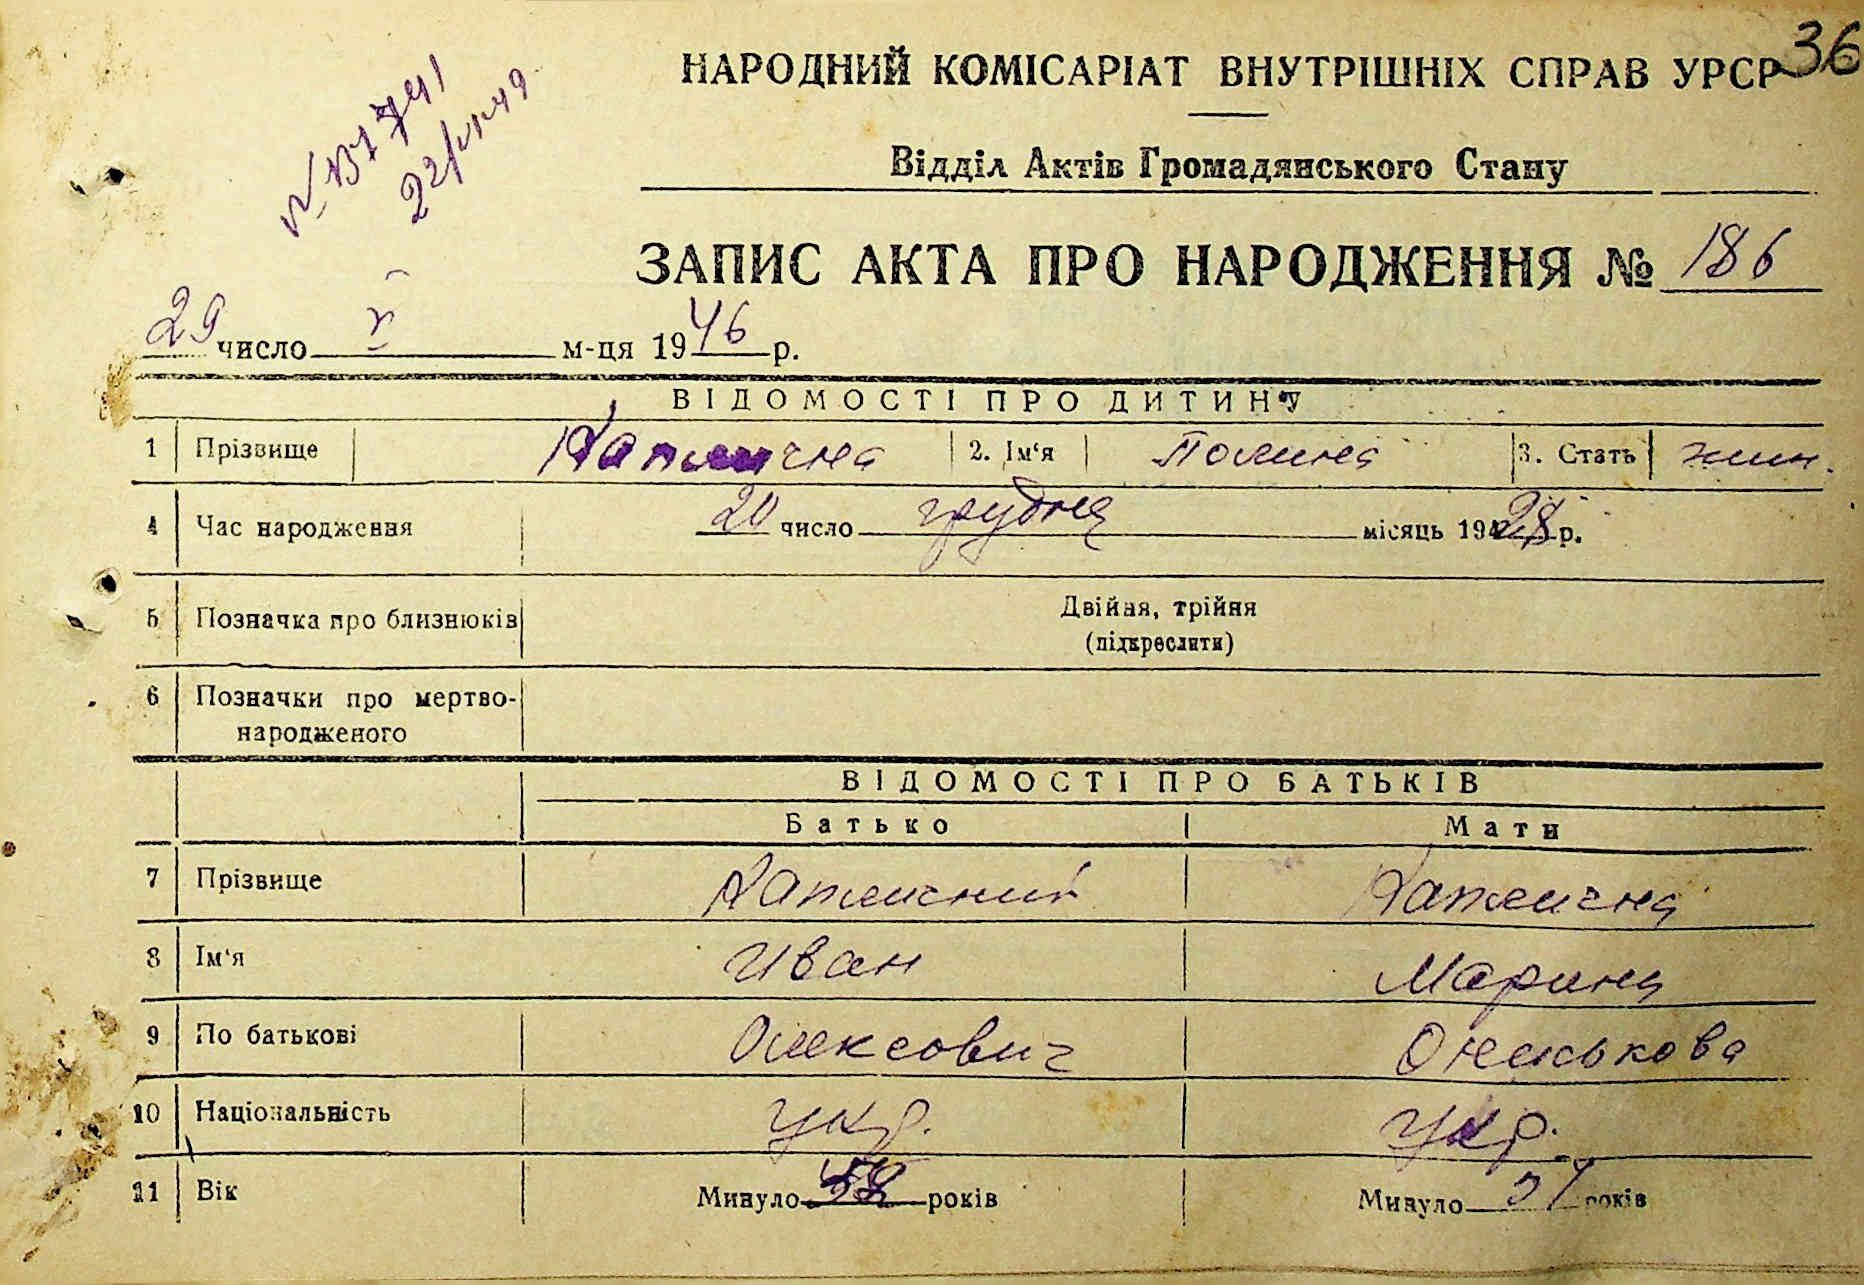 36
НАРОДНИЙ КОМІСАРІАТ ВНУТРІШНІХ СПРАВ УРСР
Відділ Актів Громадянського Стану
ЗАПИС АКТА ПРО НАРОДЖЕННЯ № 186
29 число V м-ця 1946 р.
ВІДОМОСТІ ПРО ДИТИНУ
1 Прізвище Катлична 2. Ім'я Полина 3. Стать жин.
4 Час народження 20 число грудня місяць 1928 р.
5 Позначка про близнюків Двійня, трійня
(підкреслити)
6 Позначки про мертво-
народженого
ВІДОМОСТІ ПРО БАТЬКІВ
Батько Мати
7 Прізвище Катличний Катлична
8 Ім'я Иван Марина
9 По батькові Олексович Омелькова
10 Національність укр. укр.
11 Вік Минуло років Минуло 51 років